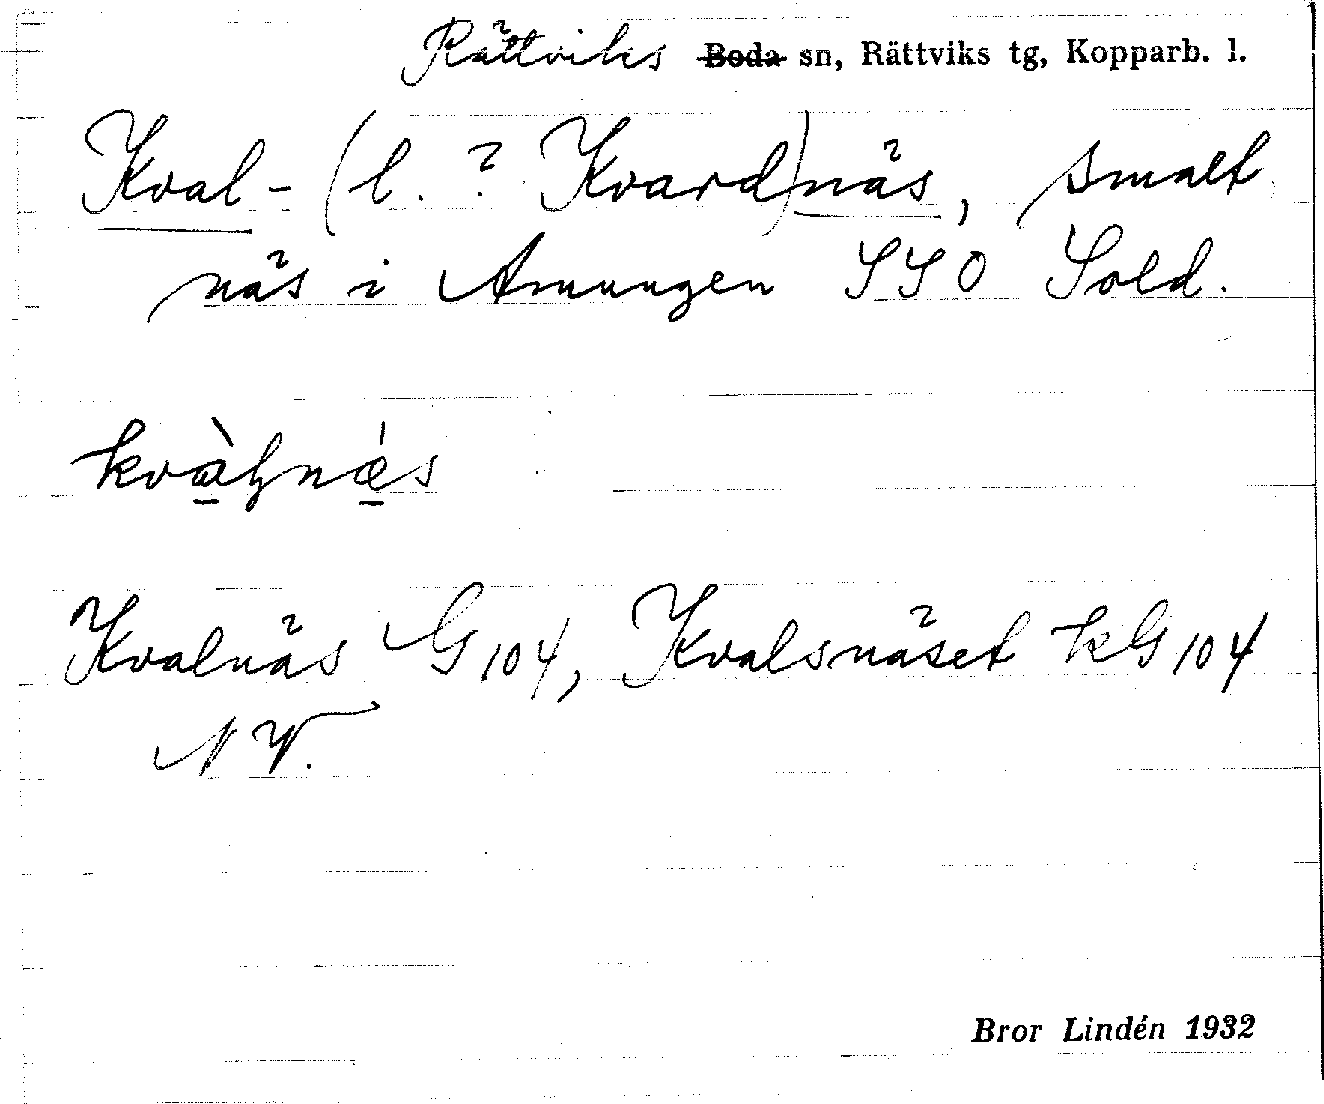 Rättviks ~~Boda~~ sn, Rättviks tg, Kopparb. l.
Kval- (l. ? Kvard)näs, smalt
näs i Amungen SSO Sold.
kvàḷnä́s
Kvalnäs G 104, Kvalsnäset kG 104
NV.
Bror Lindén 1932